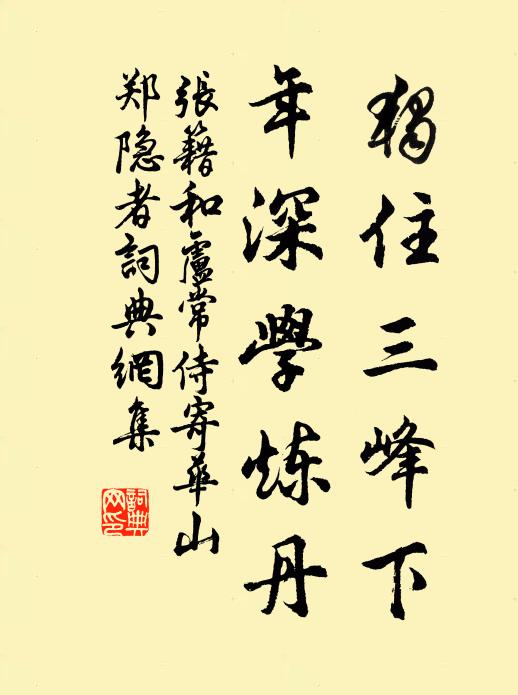 獨住三峰下
年深學炼丹
張籍和盧常侍寄華山
郑隐者詞典網集
詞典
网印